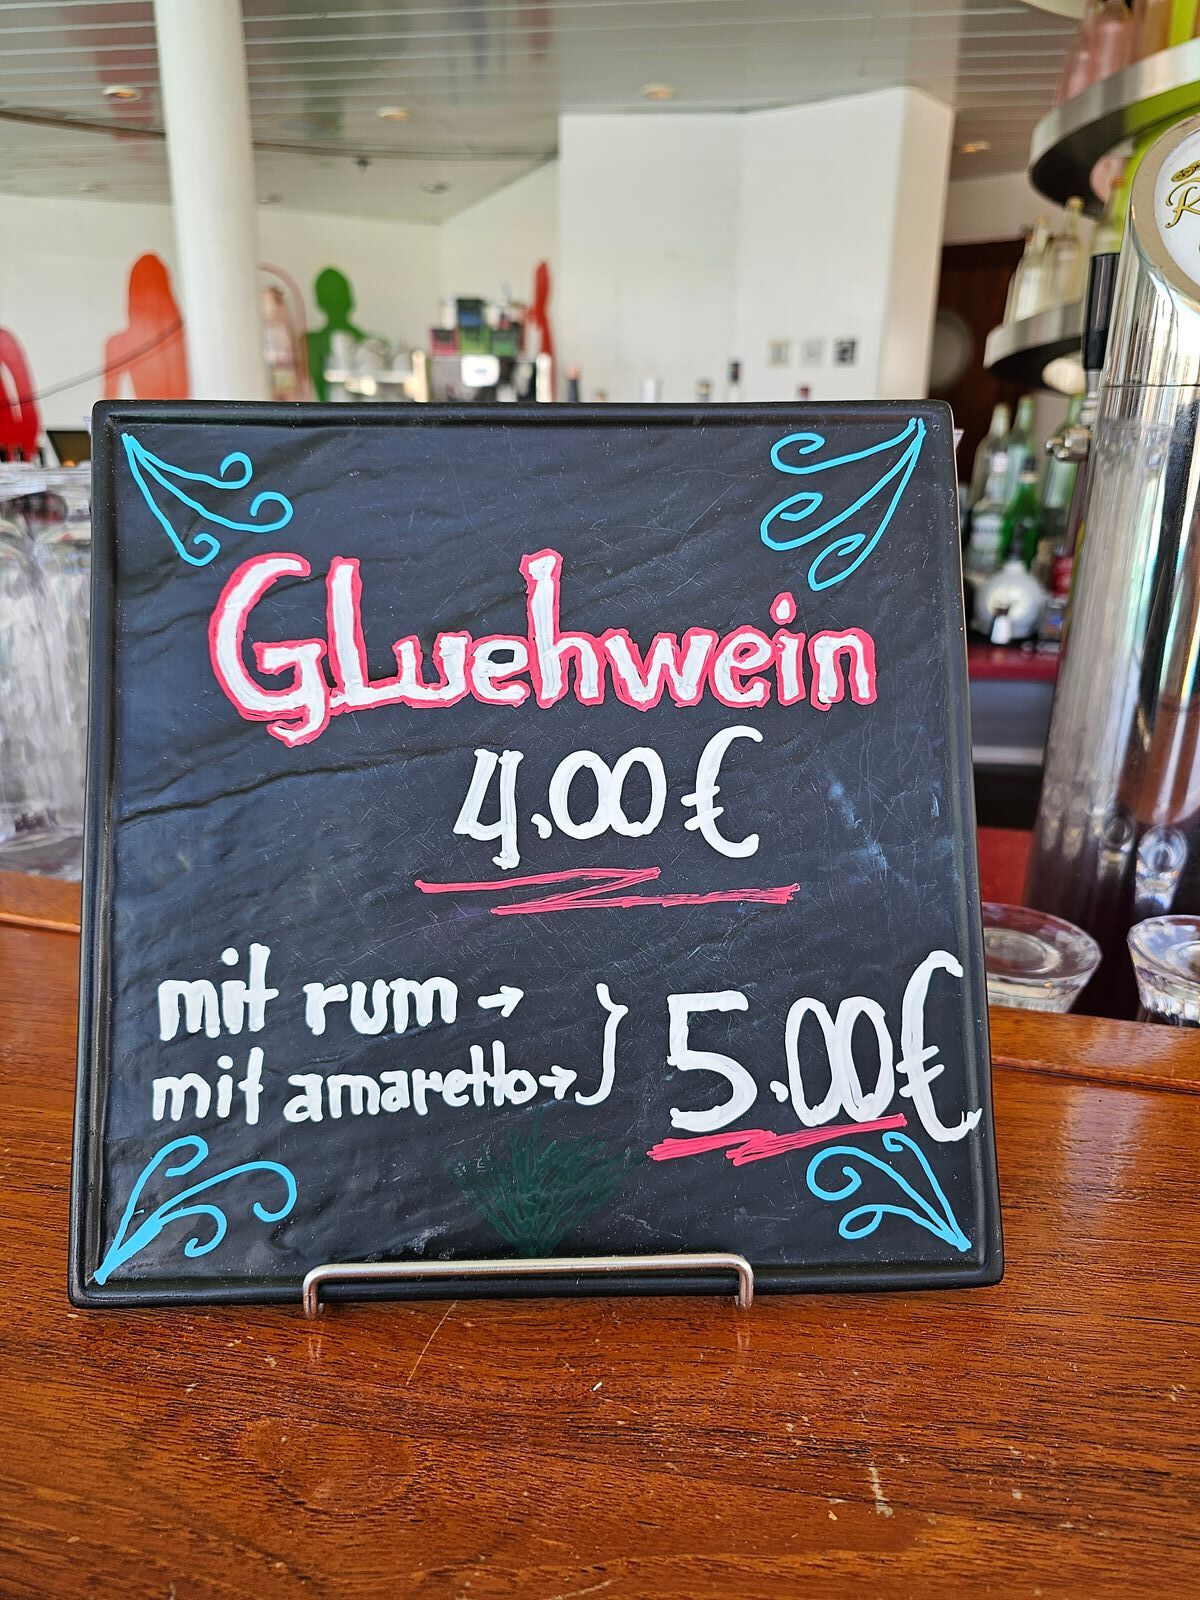 GLuehwein
4.00 €
mit rum → } 5.00 €
mit amaretto →